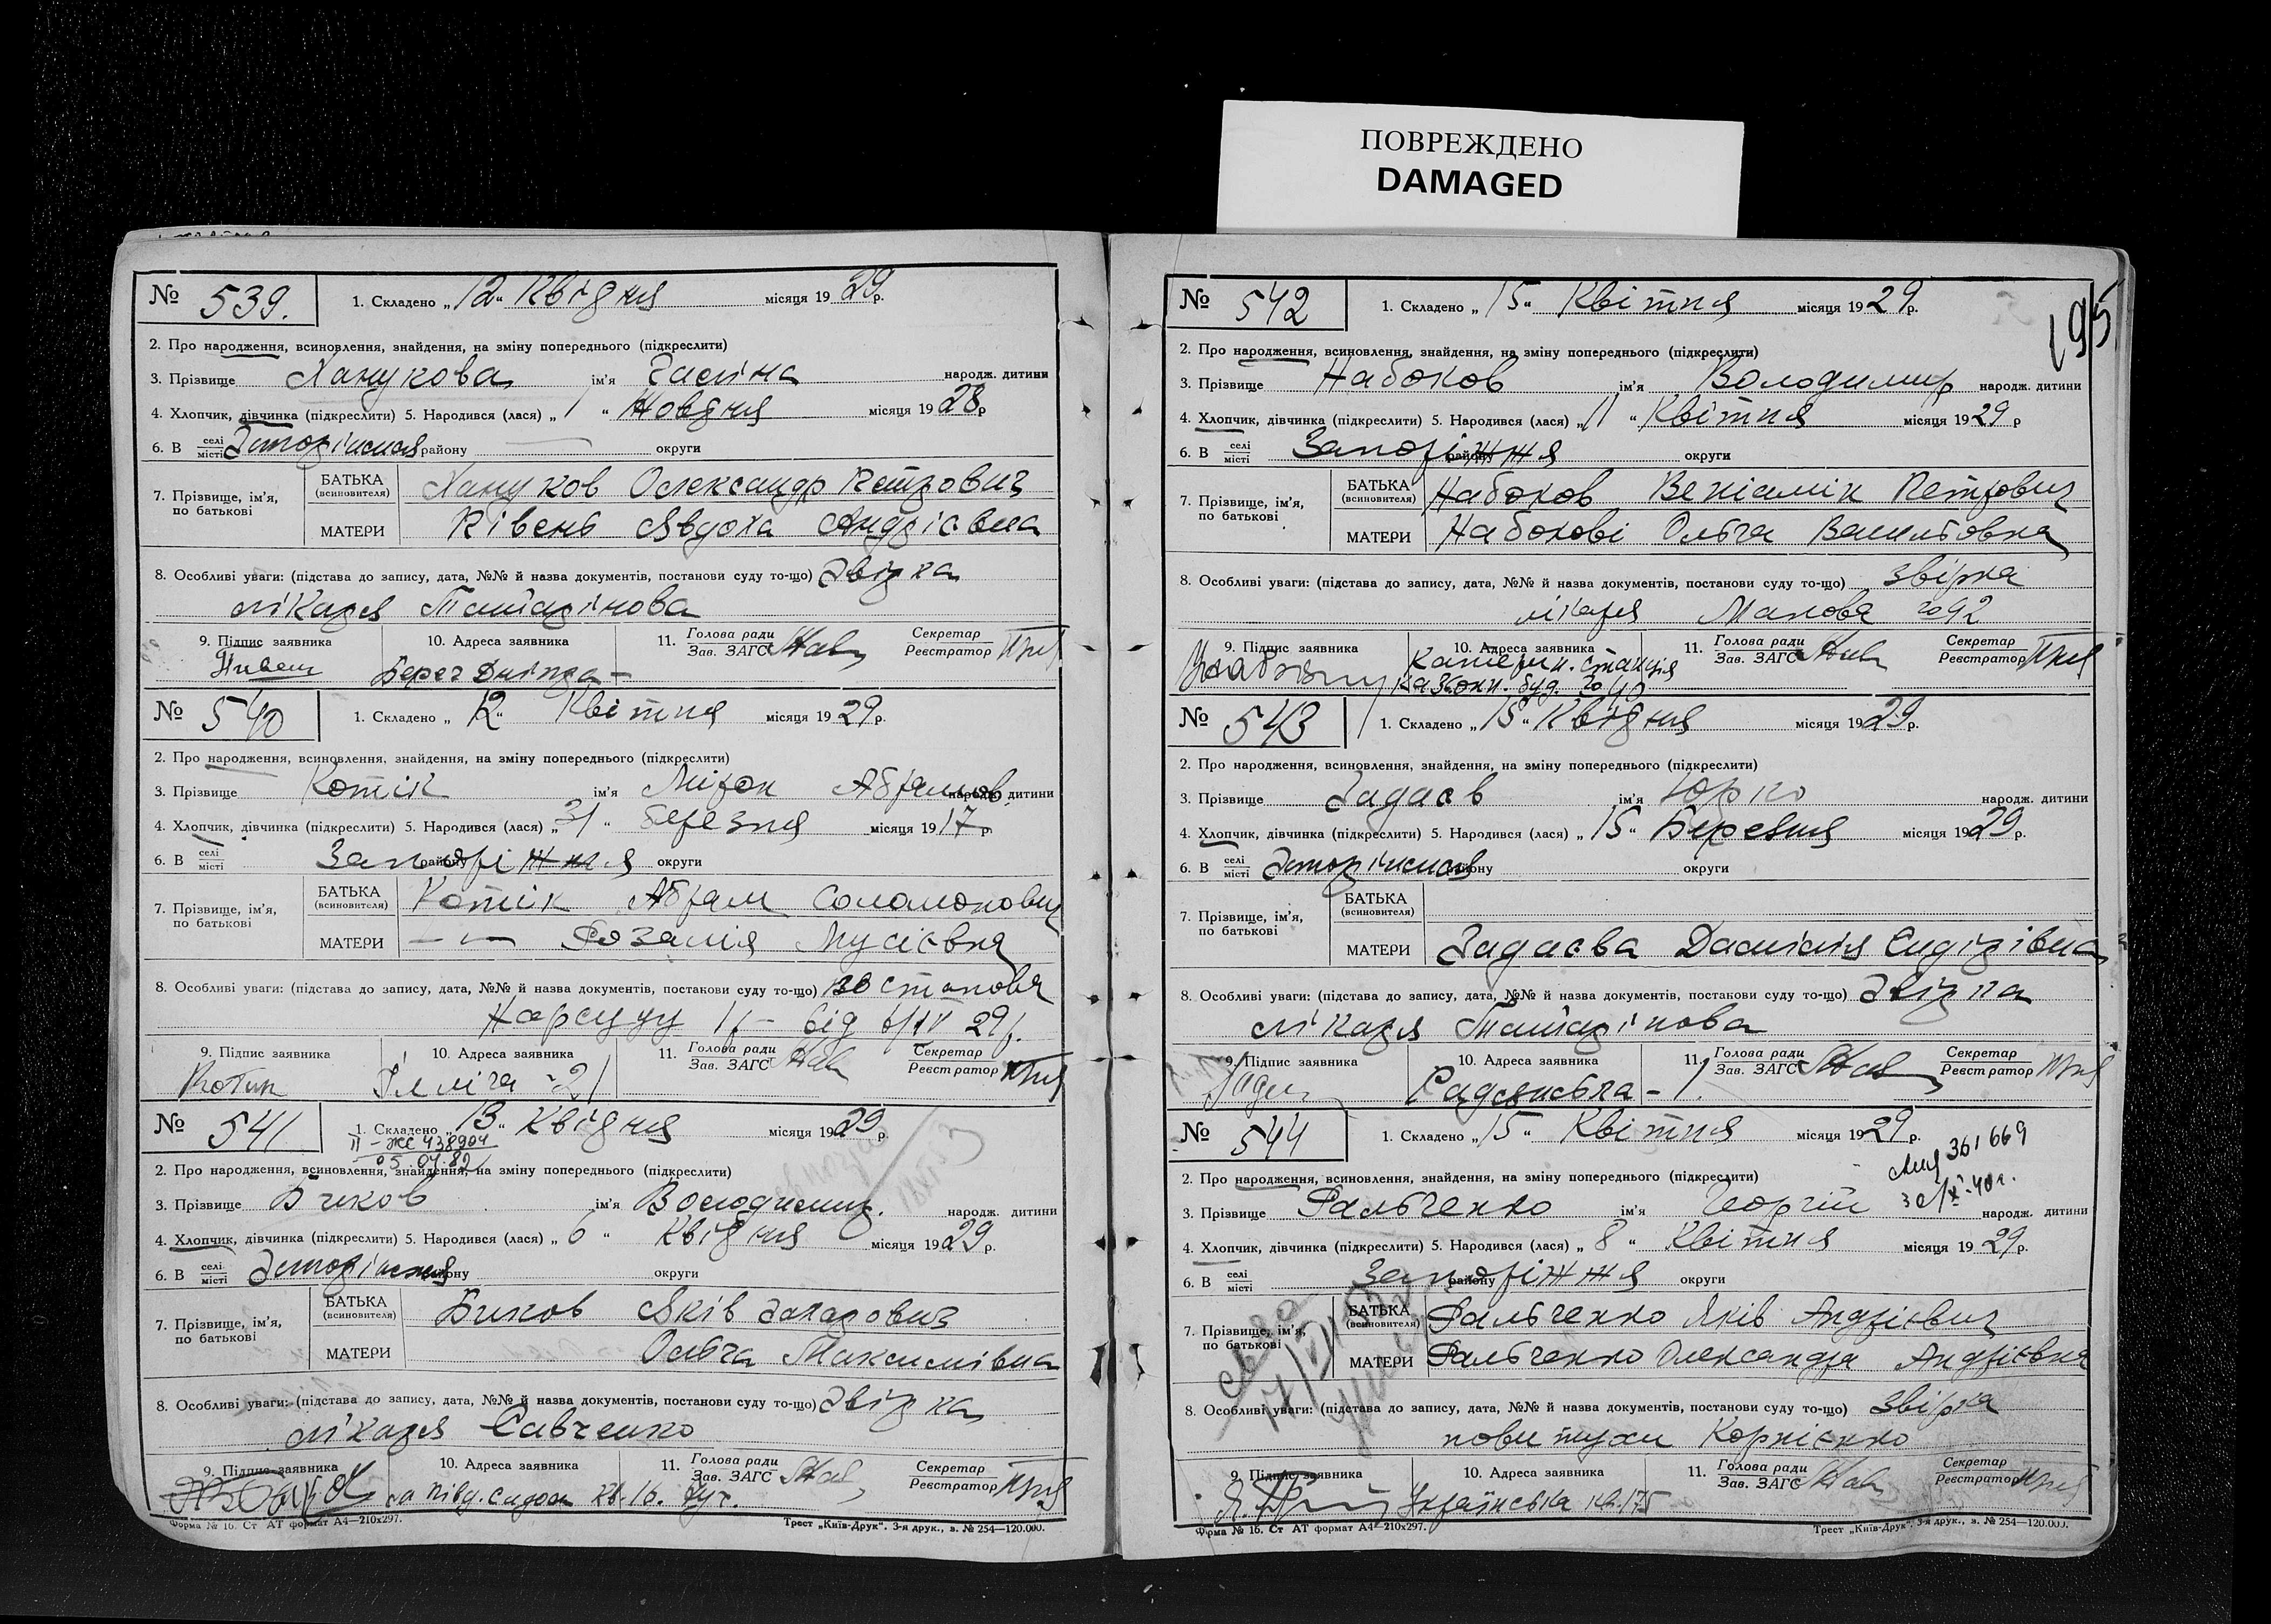 ПОВРЕЖДЕНО
DAMAGED
№ 539. 1. Складено „12“ Квітня місяця 1929 р.
2. Про народження, всиновлення, знайдення, на зміну попереднього (підкреслити)
3. Прізвище Ханукова ім'я Галина народж. дитини
4. Хлопчик, дівчинка (підкреслити) 5. Народився (лася) „1“ Жовтня місяця 1928 р
6. В селі місті Запоріжжя району округи
7. Прізвище, ім'я, по батькові БАТЬКА (всиновителя) Хануков Олександр Петрович
МАТЕРИ Півень Явдоха Андрієвна
8. Особливі уваги: (підстава до запису, дата, №№ й назва документів, постанови суду то-що) Звірка
лікаря Татарінова
9. Підпис заявника 10. Адреса заявника 11. Голова ради Зав. ЗАГС Секретар Реєстратор
Пивень Берег Дніпра –
№ 540 1. Складено „12“ Квітня місяця 1929 р.
2. Про народження, всиновлення, знайдення, на зміну попереднього (підкреслити)
3. Прізвище Котік ім'я Мірон Абрамов. народж. дитини
4. Хлопчик, дівчинка (підкреслити) 5. Народився (лася) „31“ березня місяця 1917 р.
6. В селі місті Запоріжжя району округи
7. Прізвище, ім'я, по батькові БАТЬКА (всиновителя) Котік Абрам Соломонович
МАТЕРИ — „ — Розалія Мусієвна
8. Особливі уваги: (підстава до запису, дата, №№ й назва документів, постанови суду то-що) постанова
Нарсуду від 29 р.
9. Підпис заявника 10. Адреса заявника 11. Голова ради Зав. ЗАГС Секретар Реєстратор
Котик Ілліча - 21
№ 541 1. Складено „13“ Квітня місяця 1929 р.
II – ЖС 438904
05.04.82
2. Про народження, всиновлення, знайдення, на зміну попереднього (підкреслити)
3. Прізвище Биков ім'я Володимир. народж. дитини
4. Хлопчик, дівчинка (підкреслити) 5. Народився (лася) „6“ Квітня місяця 1929 р.
6. В селі місті Запоріжжя району округи
7. Прізвище, ім'я, по батькові БАТЬКА (всиновителя) Биков Яків Захарович
МАТЕРИ Ольга Максимівна
8. Особливі уваги: (підстава до запису, дата, №№ й назва документів, постанови суду то-що) Звірка
лікаря Савченко
9. Підпис заявника 10. Адреса заявника 11. Голова ради Зав. ЗАГС Секретар Реєстратор
кв. 16.
Форма № 16. Ст АТ формат А4—210х297. Трест „Київ-Друк“. 3-я друк., з. № 254—120.000.
195
№ 542 1. Складено „15“ Квітня місяця 1929 р.
2. Про народження, всиновлення, знайдення, на зміну попереднього (підкреслити)
3. Прізвище Набоков ім'я Володимир народж. дитини
4. Хлопчик, дівчинка (підкреслити) 5. Народився (лася) „11“ Квітня місяця 1929 р
6. В селі місті Запоріжжя району округи
7. Прізвище, ім'я, по батькові БАТЬКА (всиновителя) Набоков Веніамін Петрович
МАТЕРИ Набокові Ольга Васильовна
8. Особливі уваги: (підстава до запису, дата, №№ й назва документів, постанови суду то-що) звірка
лікаря Манова № 92
9. Підпис заявника 10. Адреса заявника 11. Голова ради Зав. ЗАГС Секретар Реєстратор
Катерин. станція
буд. № 40
№ 543 1. Складено „15“ Квітня місяця 1929 р.
2. Про народження, всиновлення, знайдення, на зміну попереднього (підкреслити)
3. Прізвище Задаєв ім'я Юрко народж. дитини
4. Хлопчик, дівчинка (підкреслити) 5. Народився (лася) „15“ Березня місяця 1929 р.
6. В селі місті Запоріжжя району округи
7. Прізвище, ім'я, по батькові БАТЬКА (всиновителя)
МАТЕРИ Задаєва
8. Особливі уваги: (підстава до запису, дата, №№ й назва документів, постанови суду то-що) Звірка
лікаря Татарінова
9. Підпис заявника 10. Адреса заявника 11. Голова ради Зав. ЗАГС Секретар Реєстратор
Радянська – 1.
№ 544 1. Складено „15“ Квітня місяця 1929 р.
361669
2. Про народження, всиновлення, знайдення, на зміну попереднього (підкреслити)
3. Прізвище Фальченко ім'я Георгій народж. дитини
4. Хлопчик, дівчинка (підкреслити) 5. Народився (лася) „8“ Квітня місяця 1929 р.
6. В селі місті Запоріжжя району округи
7. Прізвище, ім'я, по батькові БАТЬКА (всиновителя) Фальченко Яків Андрієвич
МАТЕРИ Фальченко Олександра Андрієвна
8. Особливі уваги: (підстава до запису, дата, №№ й назва документів, постанови суду то-що) звірка
повитухи Корнієнко
9. Підпис заявника 10. Адреса заявника 11. Голова ради Зав. ЗАГС Секретар Реєстратор
Українська 175
Форма № 16. Ст АТ формат А4—210х297. Трест „Київ-Друк“. 3-я друк., з. № 254—120.000.